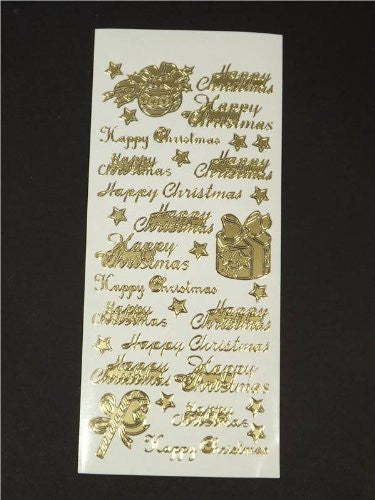 Happy
Christmas
Happy
Christmas
Happy Christmas
Happy
Christmas
Happy
Christmas
Happy Christmas
Happy
Christmas
Happy
Christmas
Happy Christmas
Happy
Christmas
Happy
Christmas
Happy Christmas
Happy
Christmas
Happy
Christmas
Happy
Christmas
Happy Christmas